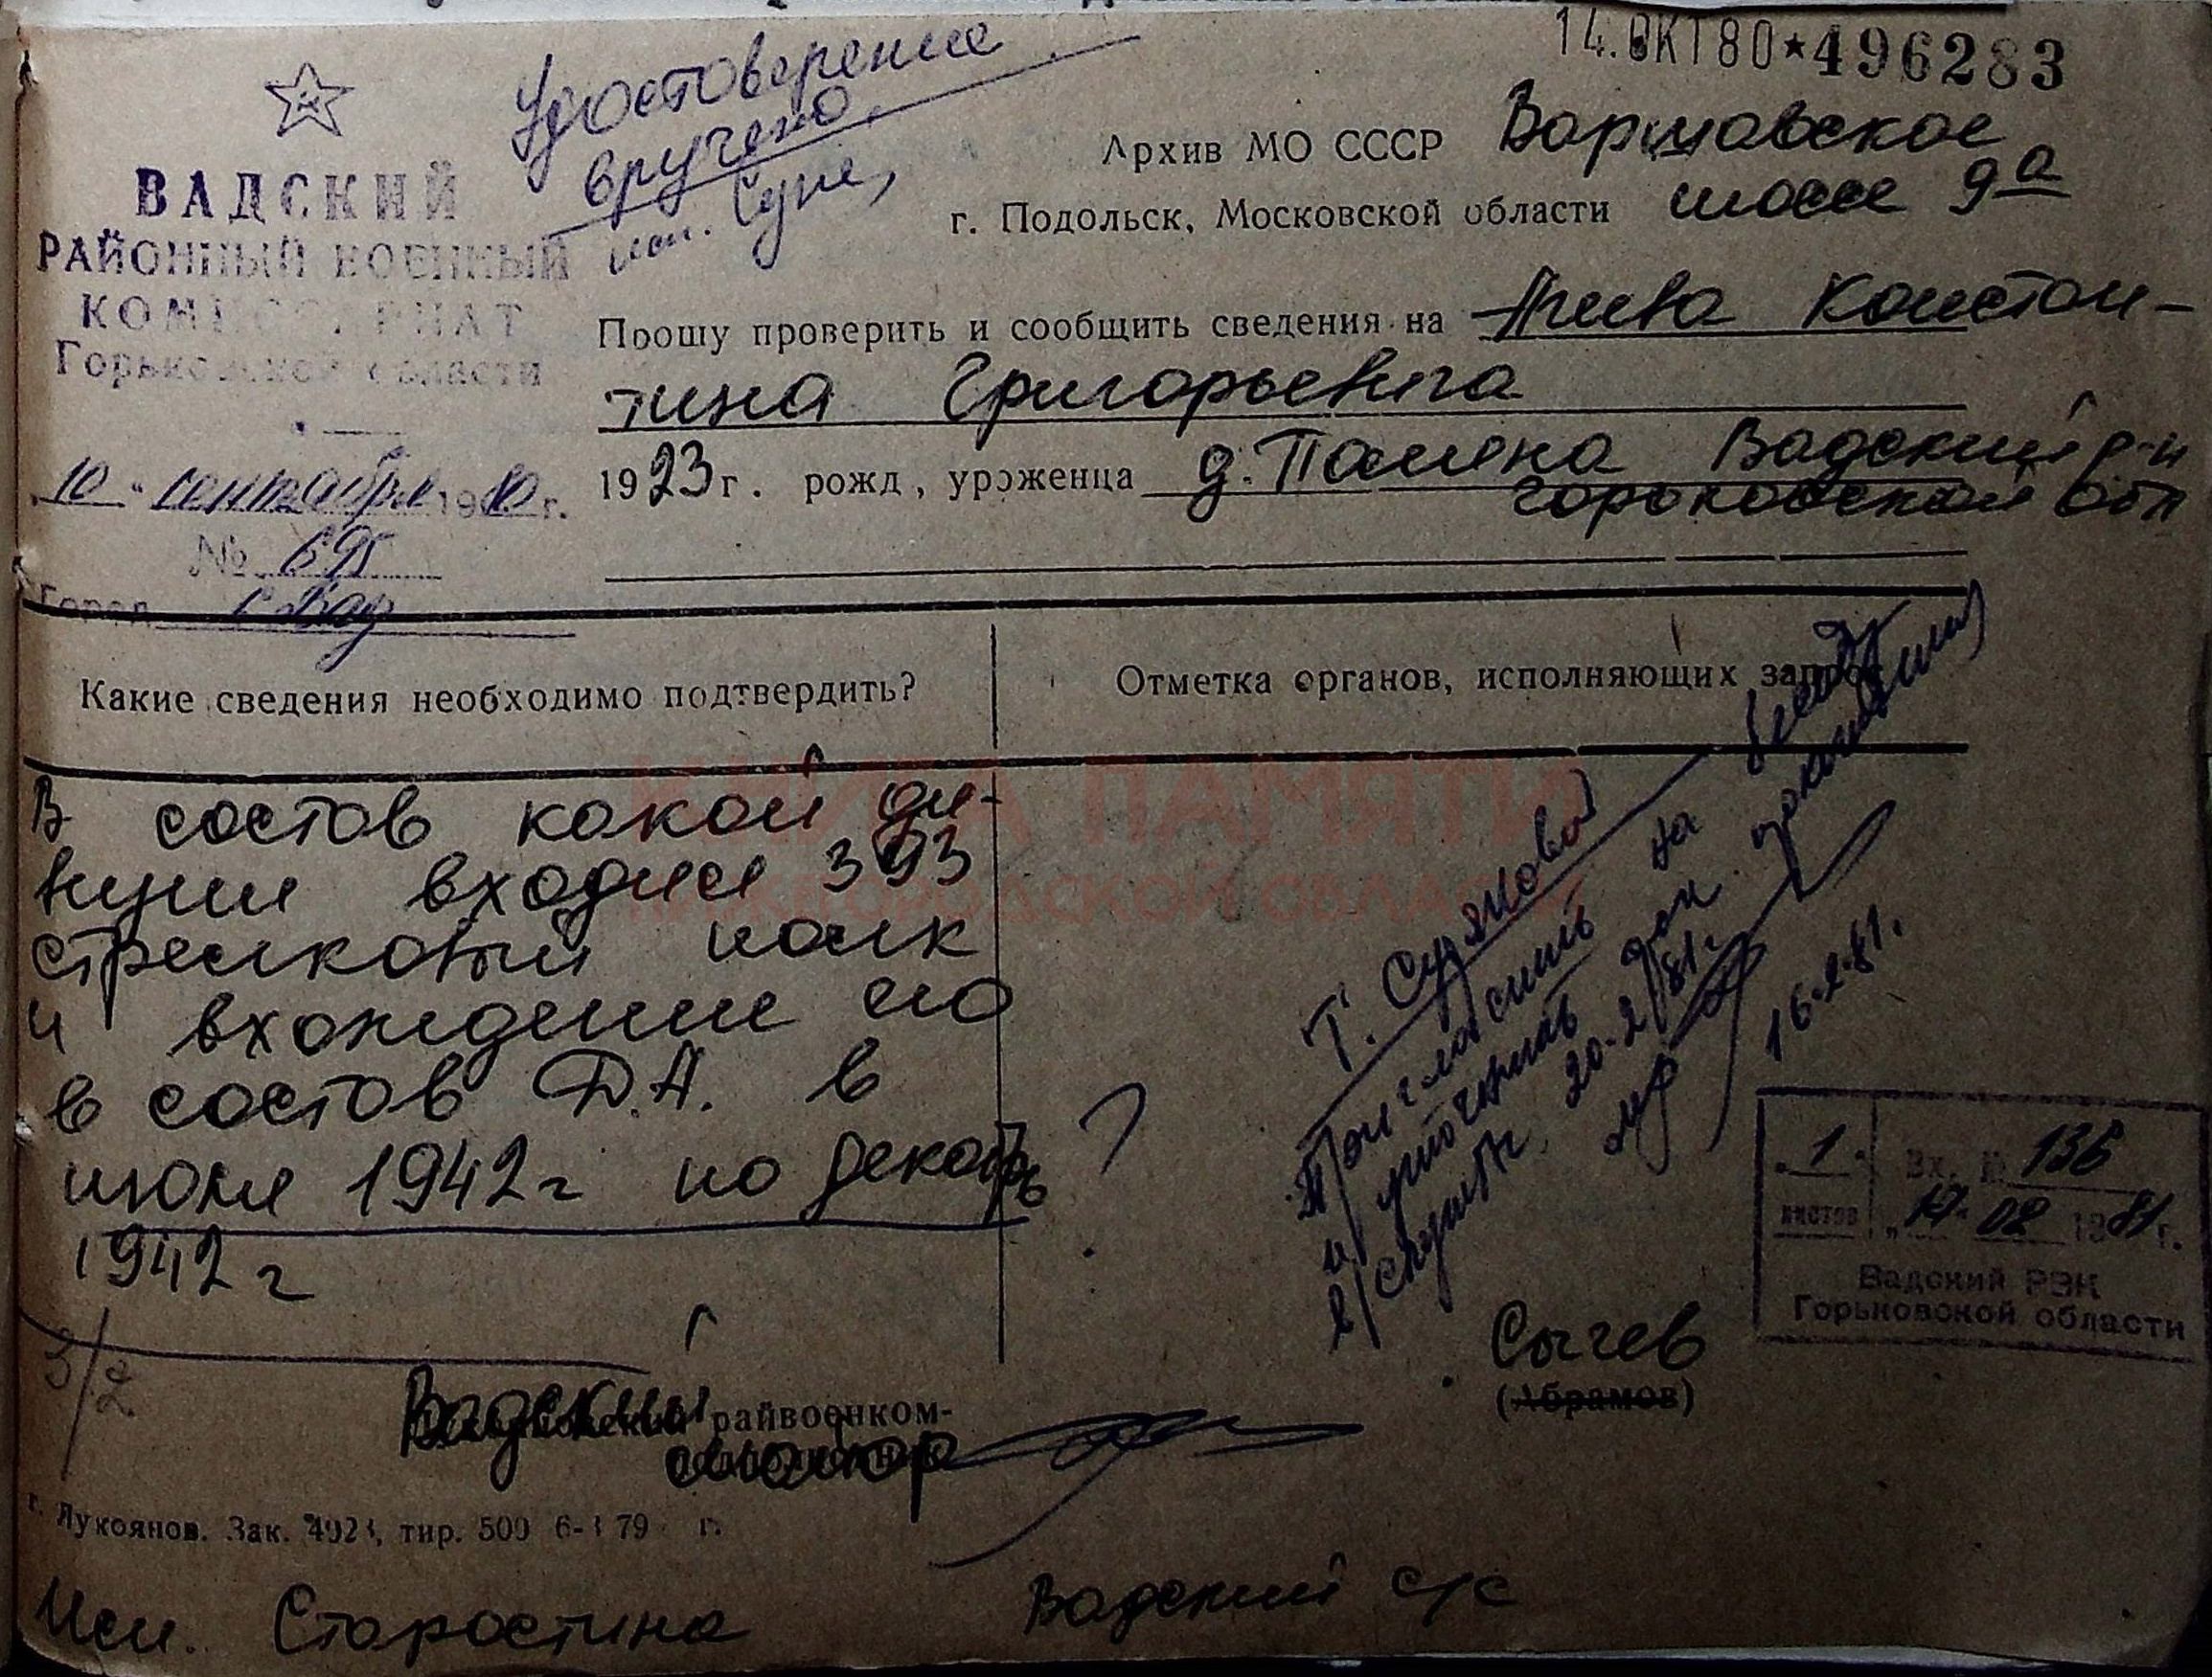 14.ОКТ80★496283
Удостоверение
вручено
исп.
ВАДСКИЙ
РАЙОННЫЙ ВОЕННЫЙ
КОМИССАРИАТ
Горьковской области
Архив МО СССР Варшавское
г. Подольск, Московской области шоссе 9а
Прошу проверить и сообщить сведения на Констан-
тина Григорьевича
"10" сентября 1980 г.
1923 г. рожд, уроженца Вадский р-н
Горьковской обл
№ 695
Город с Вад
Какие сведения необходимо подтвердить?
Отметка органов, исполняющих запрос
КНИГА ПАМЯТИ
НИЖЕГОРОДСКОЙ ОБЛАСТИ
В состав какой ди-
визии входил 393
стрелковый полк
и вхождение его
в состав Д.А. в
июле 1942 г по декабрь
1942 г
?
Пригласить на беседу
и уточнить
20.2.81г.
16.2.81.
1 листов
Вх. № 136
"17" 02 1981 г.
Вадский РВК
Горьковской области
3/2
Сычев
(Абрамов)
Вадский райвоенком-
майор
г. Лукоянов. Зак. 4923, тир. 500 79 г.
Исп. Старостина
Вадский с/с